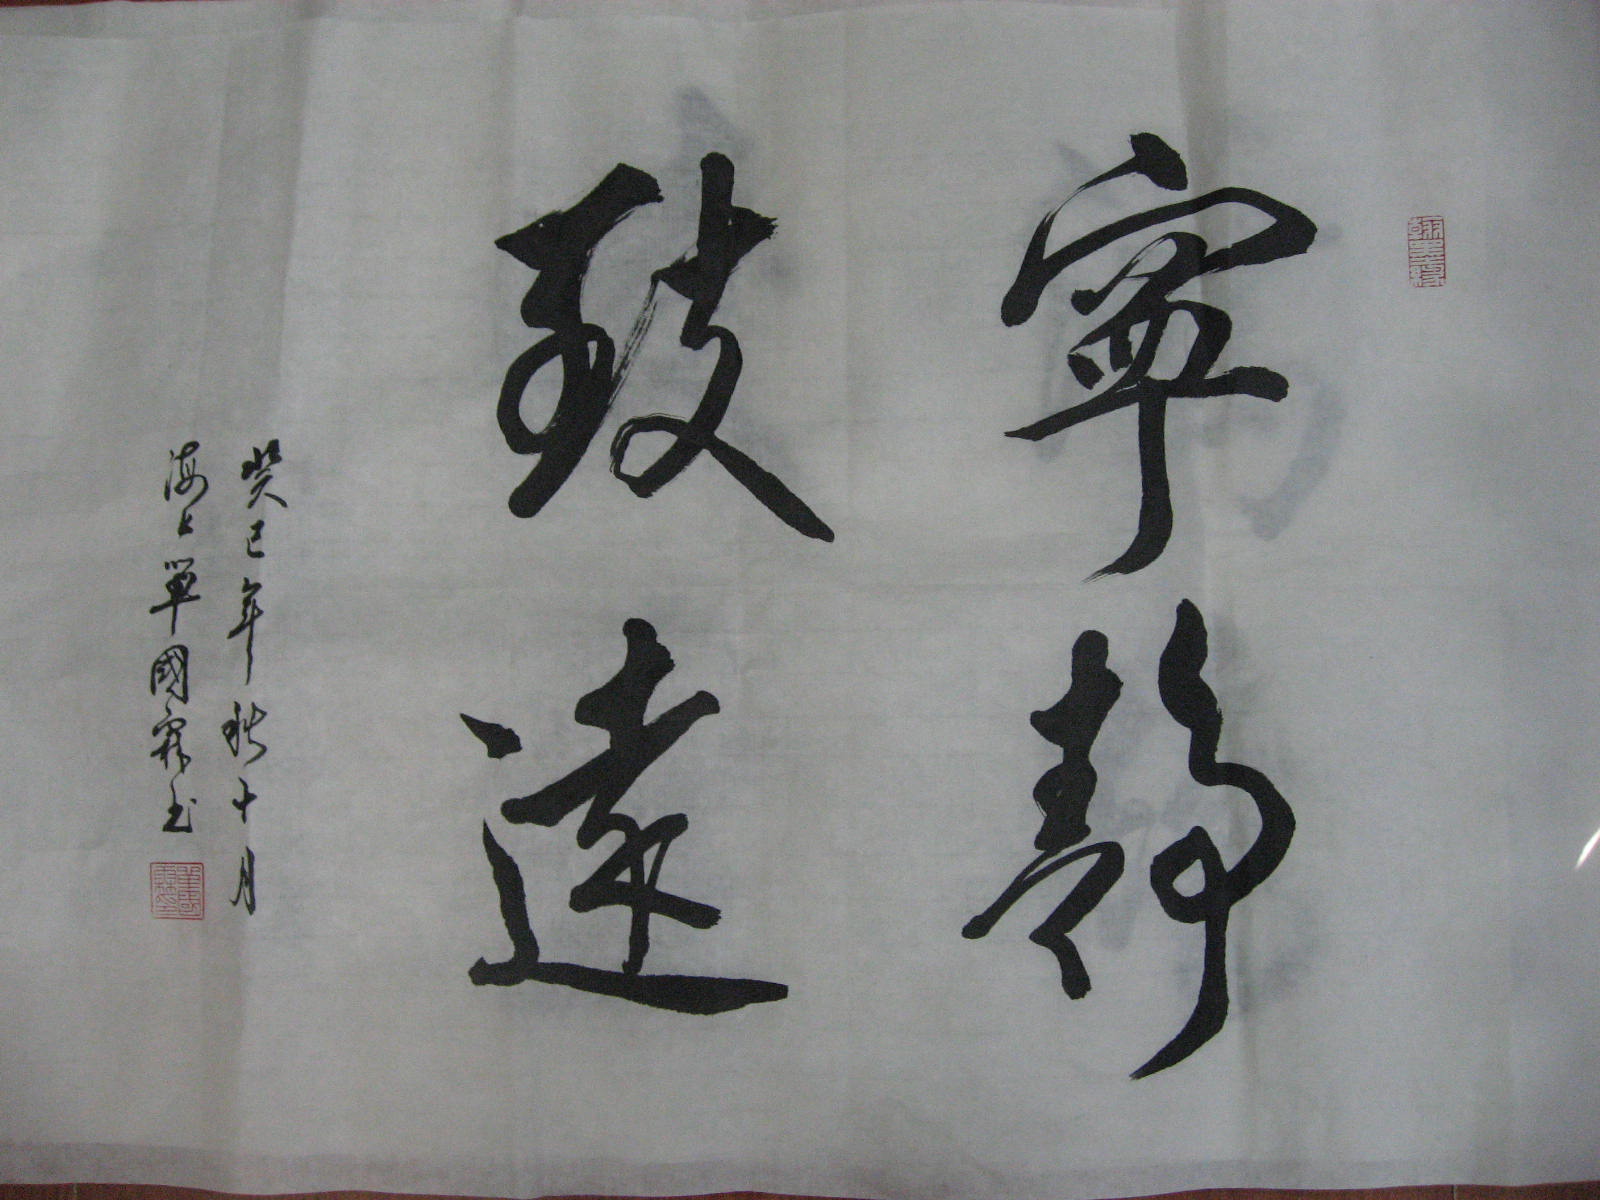 翰墨緣
寧靜
致遠
癸巳年秋十月
海上單國霖書